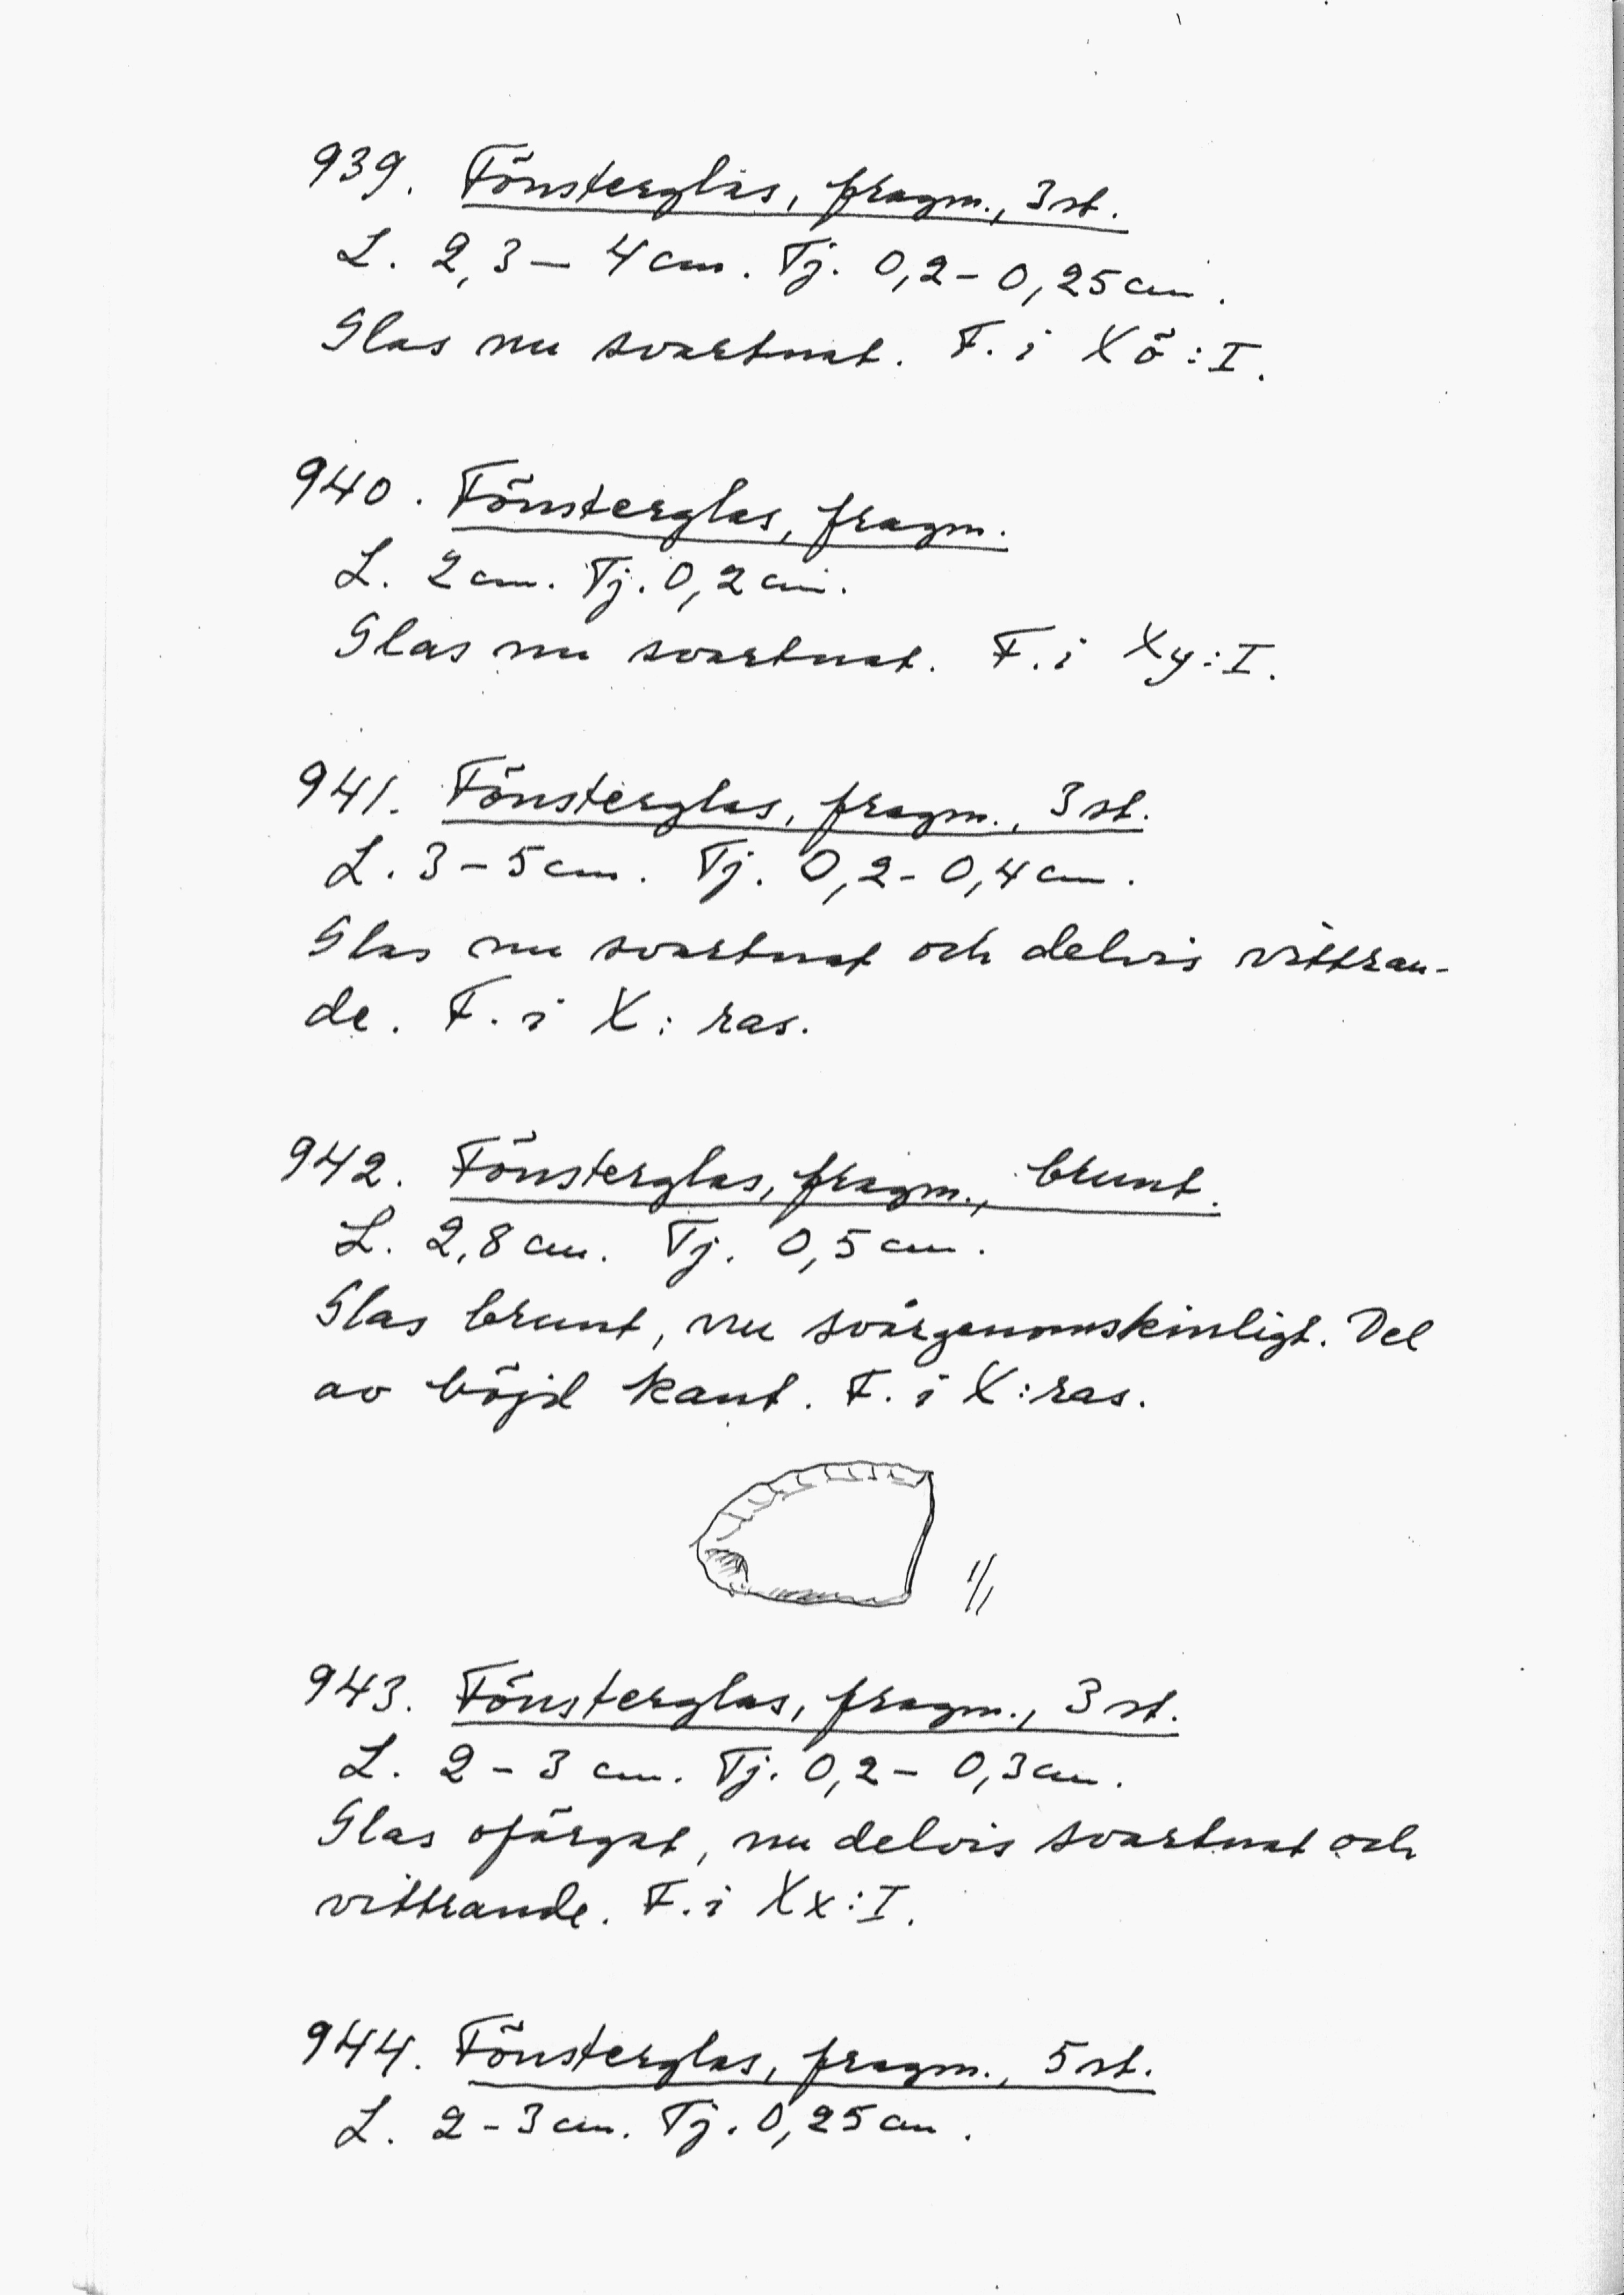 939. Fönsterglas, fragm., 3 st.
L. 2,3 – 4 cm. Tj. 0,2 – 0,25 cm.
Glas nu svartnat. F. i Xö:I.
940. Fönsterglas, fragm.
L. 2 cm. Tj. 0,2 cm.
Glas nu svartnat. F. i Xy:I.
941. Fönsterglas, fragm., 3 st.
L. 3 – 5 cm. Tj. 0,2 – 0,4 cm.
Glas nu svartnat och delvis vittran-
de. F. i X: ras.
942. Fönsterglas, fragm., brunt.
L. 2,8 cm. Tj. 0,5 cm.
Glas brunt, nu svårgenomskinligt. Del
av böjd kant. F. i X:ras.
1/1
943. Fönsterglas, fragm., 3 st.
L. 2 – 3 cm. Tj. 0,2 – 0,3 cm.
Glas ofärgat, nu delvis svartnat och
vittrande. F. i Xx:I.
944. Fönsterglas, fragm., 5 st.
L. 2 – 3 cm. Tj. 0,25 cm.